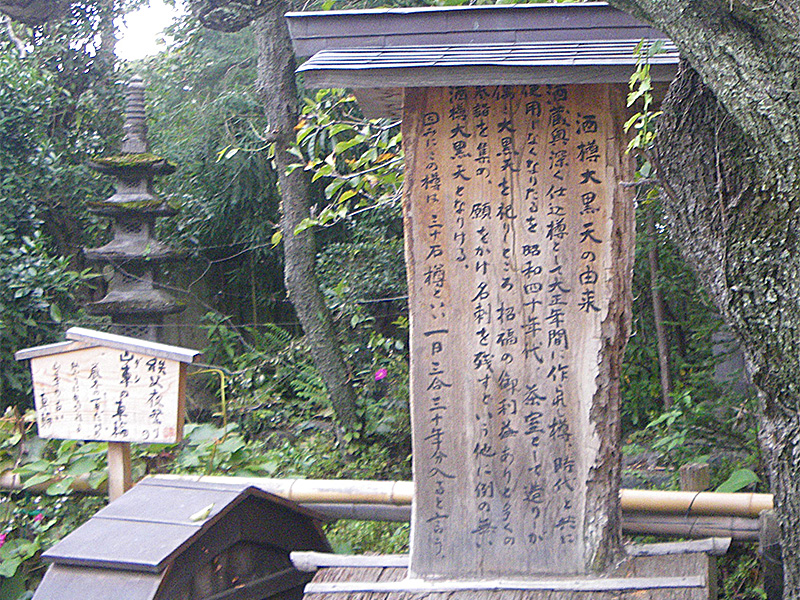 酒樽大黒天の由来
酒蔵奥深く仕込樽として大正年間に作られ樽、時代と共に
使用しなくなりたるを昭和四十年代、茶室として造りか
備し大黒天を祀りしところ招福の御利益ありと多くの
参詣を集め願をかけ名刺を残すという他に例の無い
酒樽大黒天となりける。
因みにこの樽は三十石樽といい一日三合三十年分入ると言う。
秩父夜祭
山車の車輪